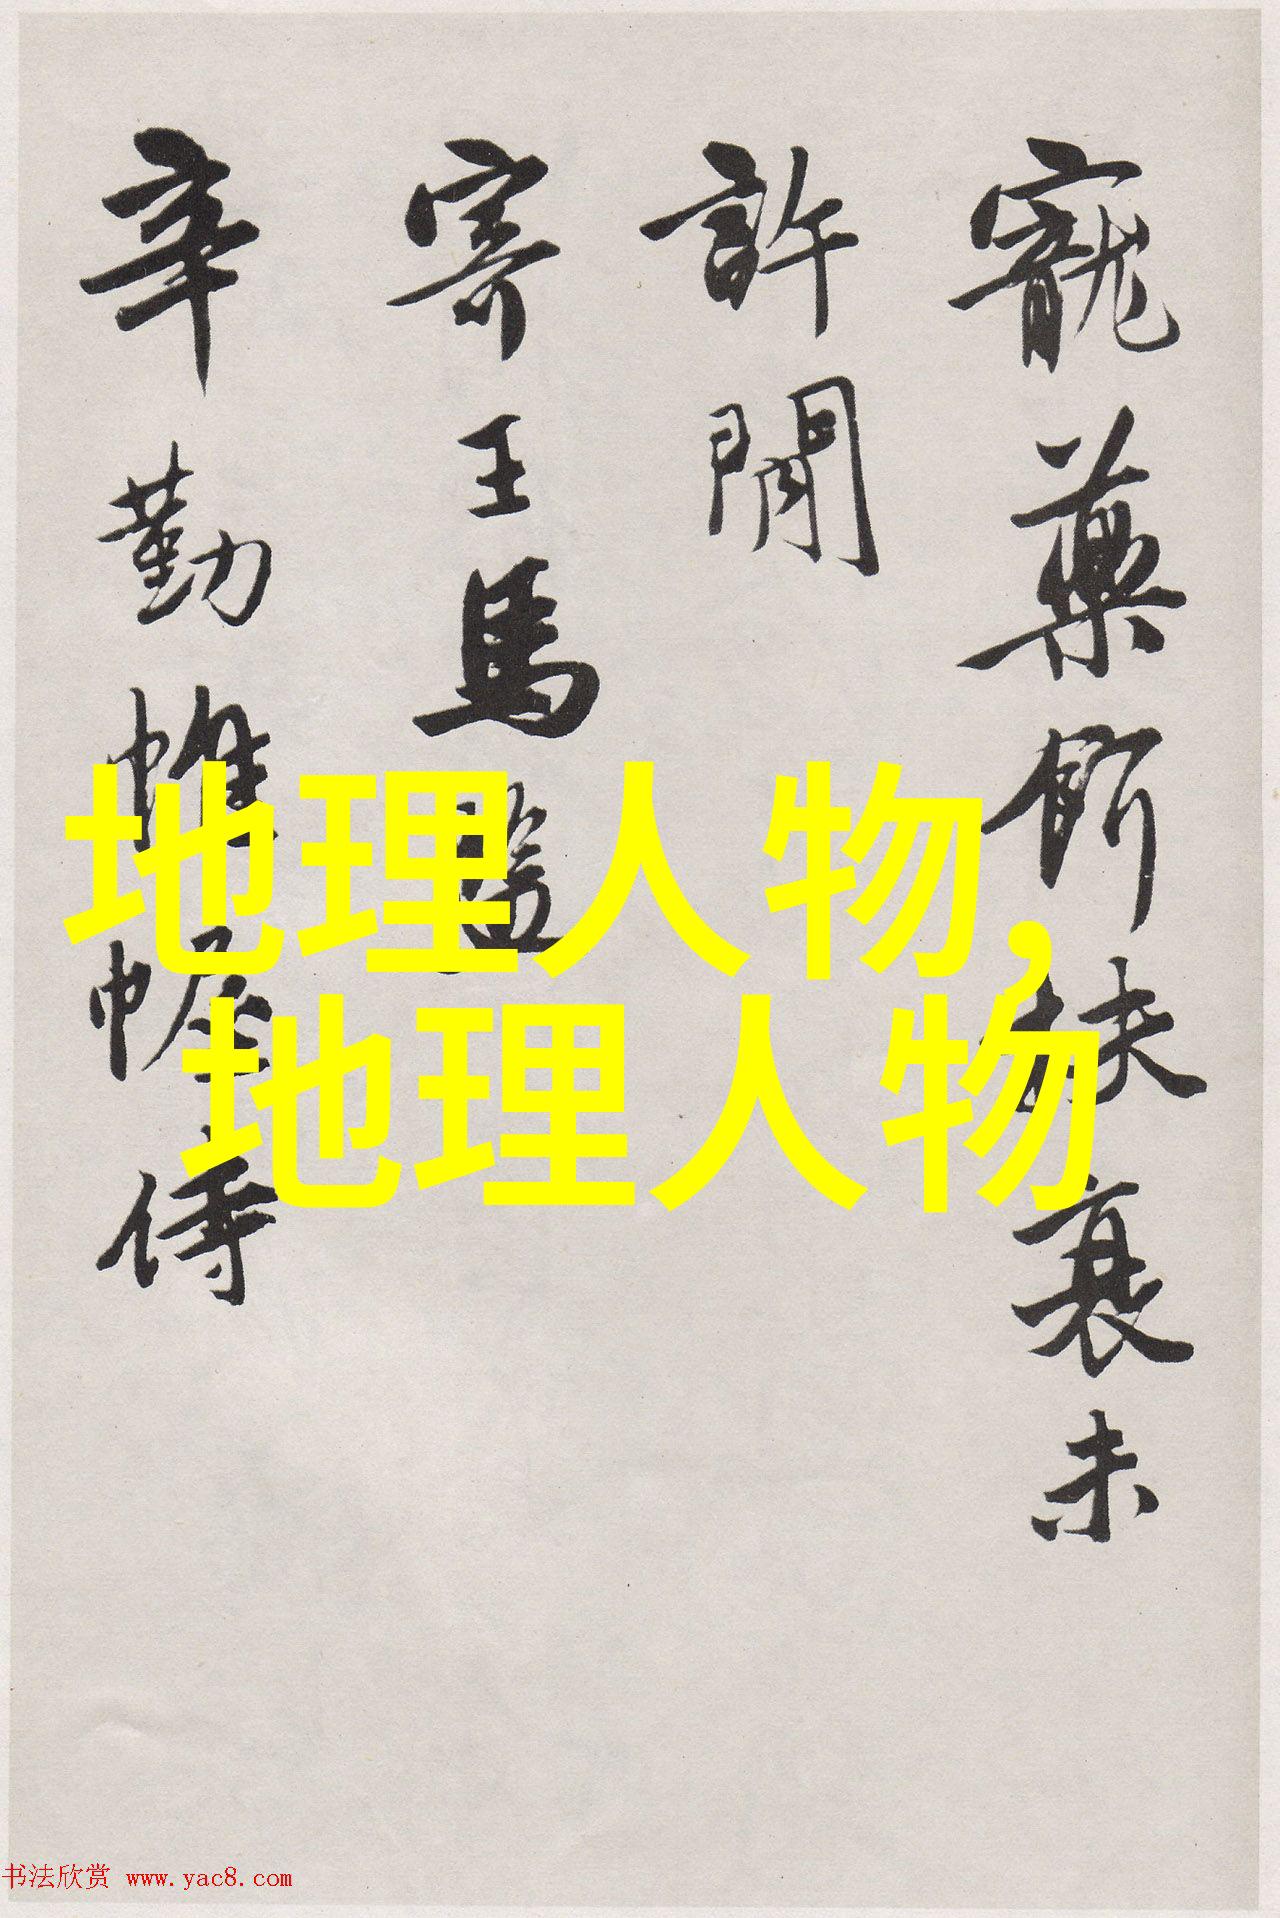 寵藥餌扶衰未
許閒
寄王馬
辛勤帷幄侍
地理人物,
地理人物
书法欣赏 www.yac8.com